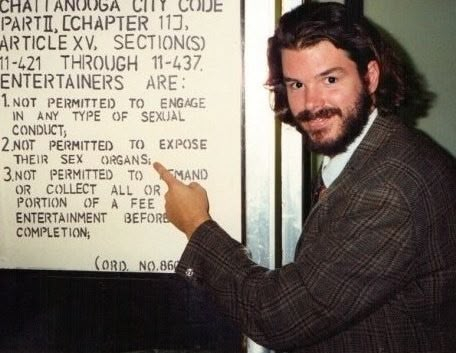 CHATTANOOGA CITY CODE
PART II, [CHAPTER 11],
ARTICLE XV, SECTION(S)
11-421 THROUGH 11-437.
ENTERTAINERS ARE:
1. NOT PERMITTED TO ENGAGE
IN ANY TYPE OF SEXUAL
CONDUCT;
2. NOT PERMITTED TO EXPOSE
THEIR SEX ORGANS;
3. NOT PERMITTED TO
OR COLLECT ALL OR
PORTION OF A FEE
ENTERTAINMENT BEFORE
COMPLETION;
(ORD. NO. 860